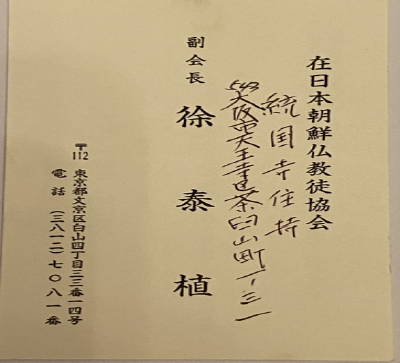 在日本朝鮮仏教徒協会
統国寺住持
543 大阪市天王寺区茶臼山町一ー三一
副会長
徐泰植
〒112 東京都文京区白山四丁目三三番一四号
電話 (三八一二) 七〇八一番